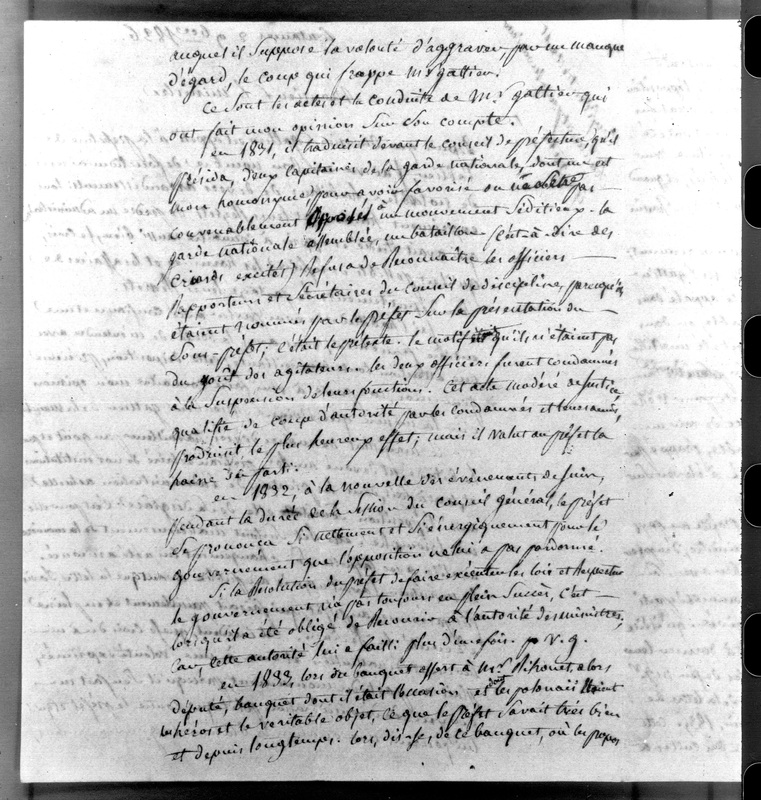 auquel il suppose la volonté d'aggraver, par un manque
d'égard, le coup qui frappe Mr. gattier.
Ce sont les actes et la conduite de Mr. gattier qui
ont fait mon opinion sur son compte.
en 1831, il traduisit devant le conseil de préfecture, qu'il
présida, deux capitaines de la garde nationale, dont un est
mon homonyme, pour avoir favorisé ou ne s'être pas
convenablement opposés à un mouvement séditieux. la
garde nationale assemblée, un bataillon (c'est-à-dire des
criards excités) refusa de reconnaître les officiers
rapporteurs et secrétaires du conseil de discipline, parcequ'ils
étaient nommés par le préfet sur la présentation du
sous-préfet; c'était le prétexte. le motif qu'ils n'étaient pas
du goût des agitateurs. les deux officiers furent condamnés
à la suspension de leurs fonctions. Cet acte modéré de justice,
qualifié de coup d'autorité par les condamnés et leurs amis,
produisit le plus heureux effet; mais il valut au préfet la
haine du parti.
en 1832, à la nouvelle des évènements de juin,
pendant la durée de la session du conseil général, le préfet
se prononça si nettement et si énergiquement pour le
gouvernement que l'opposition ne lui a pas pardonné.
Si la résolution du préfet de faire exécuter les lois et respecter
le gouvernement n'a pas toujours eu plein succès, c'est
lorsqu'il a été obligé de recourir à l'autorité des ministres,
car, cette autorité lui a failli plus d'une fois. p. v. g.
en 1833, lors du banquet offert à Mr. alors
député, banquet dont il était l'occasion et dont les polonais étaient
les héros et le veritable objet, ce que le préfet savait très bien
et depuis longtemps. lors, dis-je, de ce banquet, où les propos